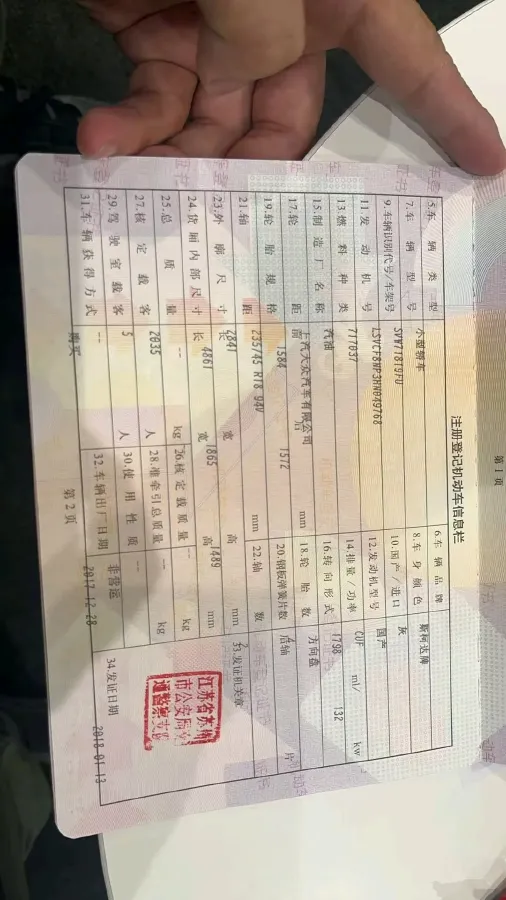 第1页
注册登记机动车信息栏
5.车辆类型 小型轿车 6.车辆品牌 斯柯达牌
7.车辆型号 SVW7181SFD 8.车身颜色 灰
9.车辆识别代号/车架号 LSVCF8NP3HN049768 10.国产/进口 国产
11.发动机号 717037 12.发动机型号 CUF
13.燃料种类 汽油 14.排量/功率 1798 ml/ 132 kw
15.制造厂名称 上汽大众汽车有限公司 16.转向形式 方向盘
17.轮距 前 1584 后 1572 mm 18.轮胎数
19.轮胎规格 235/45 R18 94V 20.钢板弹簧片数 后轴 片
21.轴距 2841 mm 22.轴数
23.外廓尺寸 长 4861 宽 1865 高 1489 mm 33.发证机关章
24.货厢内部尺寸 长 宽 高 mm
25.总质量 -- kg 26.核定载质量 -- kg
27.核定载客 人 28.准牵引总质量 -- kg
29.驾驶室载客 人 30.使用性质 非营运
31.车辆获得方式 购买 32.车辆出厂日期 2017-12-28 34.发证日期 2018-01-13
江苏省苏州
市公安局交
通警察支队
第2页